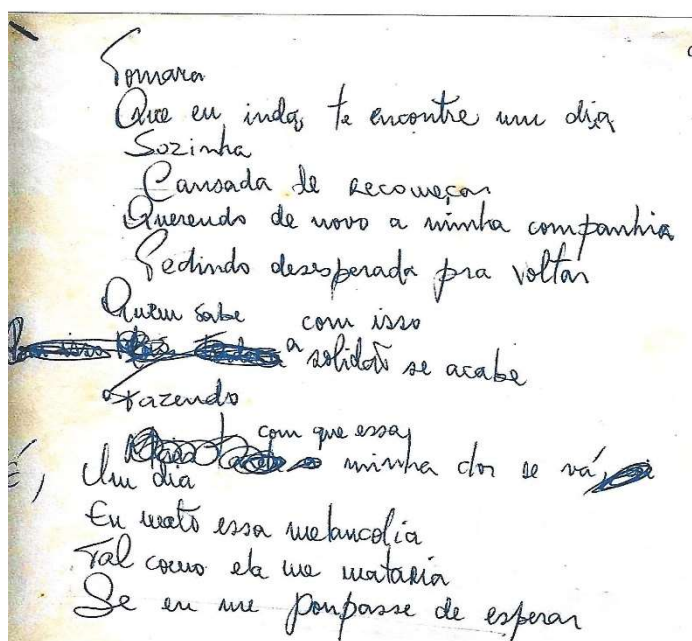 Tomara
Que eu inda te encontre um dia
Sozinha
Cansada de recomeçar
Querendo de novo a minha companhia
Pedindo desesperada pra voltar
Quem sabe com isso
a solidão se acabe
Fazendo
com que essa
minha dor se vá,
É, Um dia
Eu mato essa melancolia
Tal como ela me mataria
Se eu me poupasse de esperar